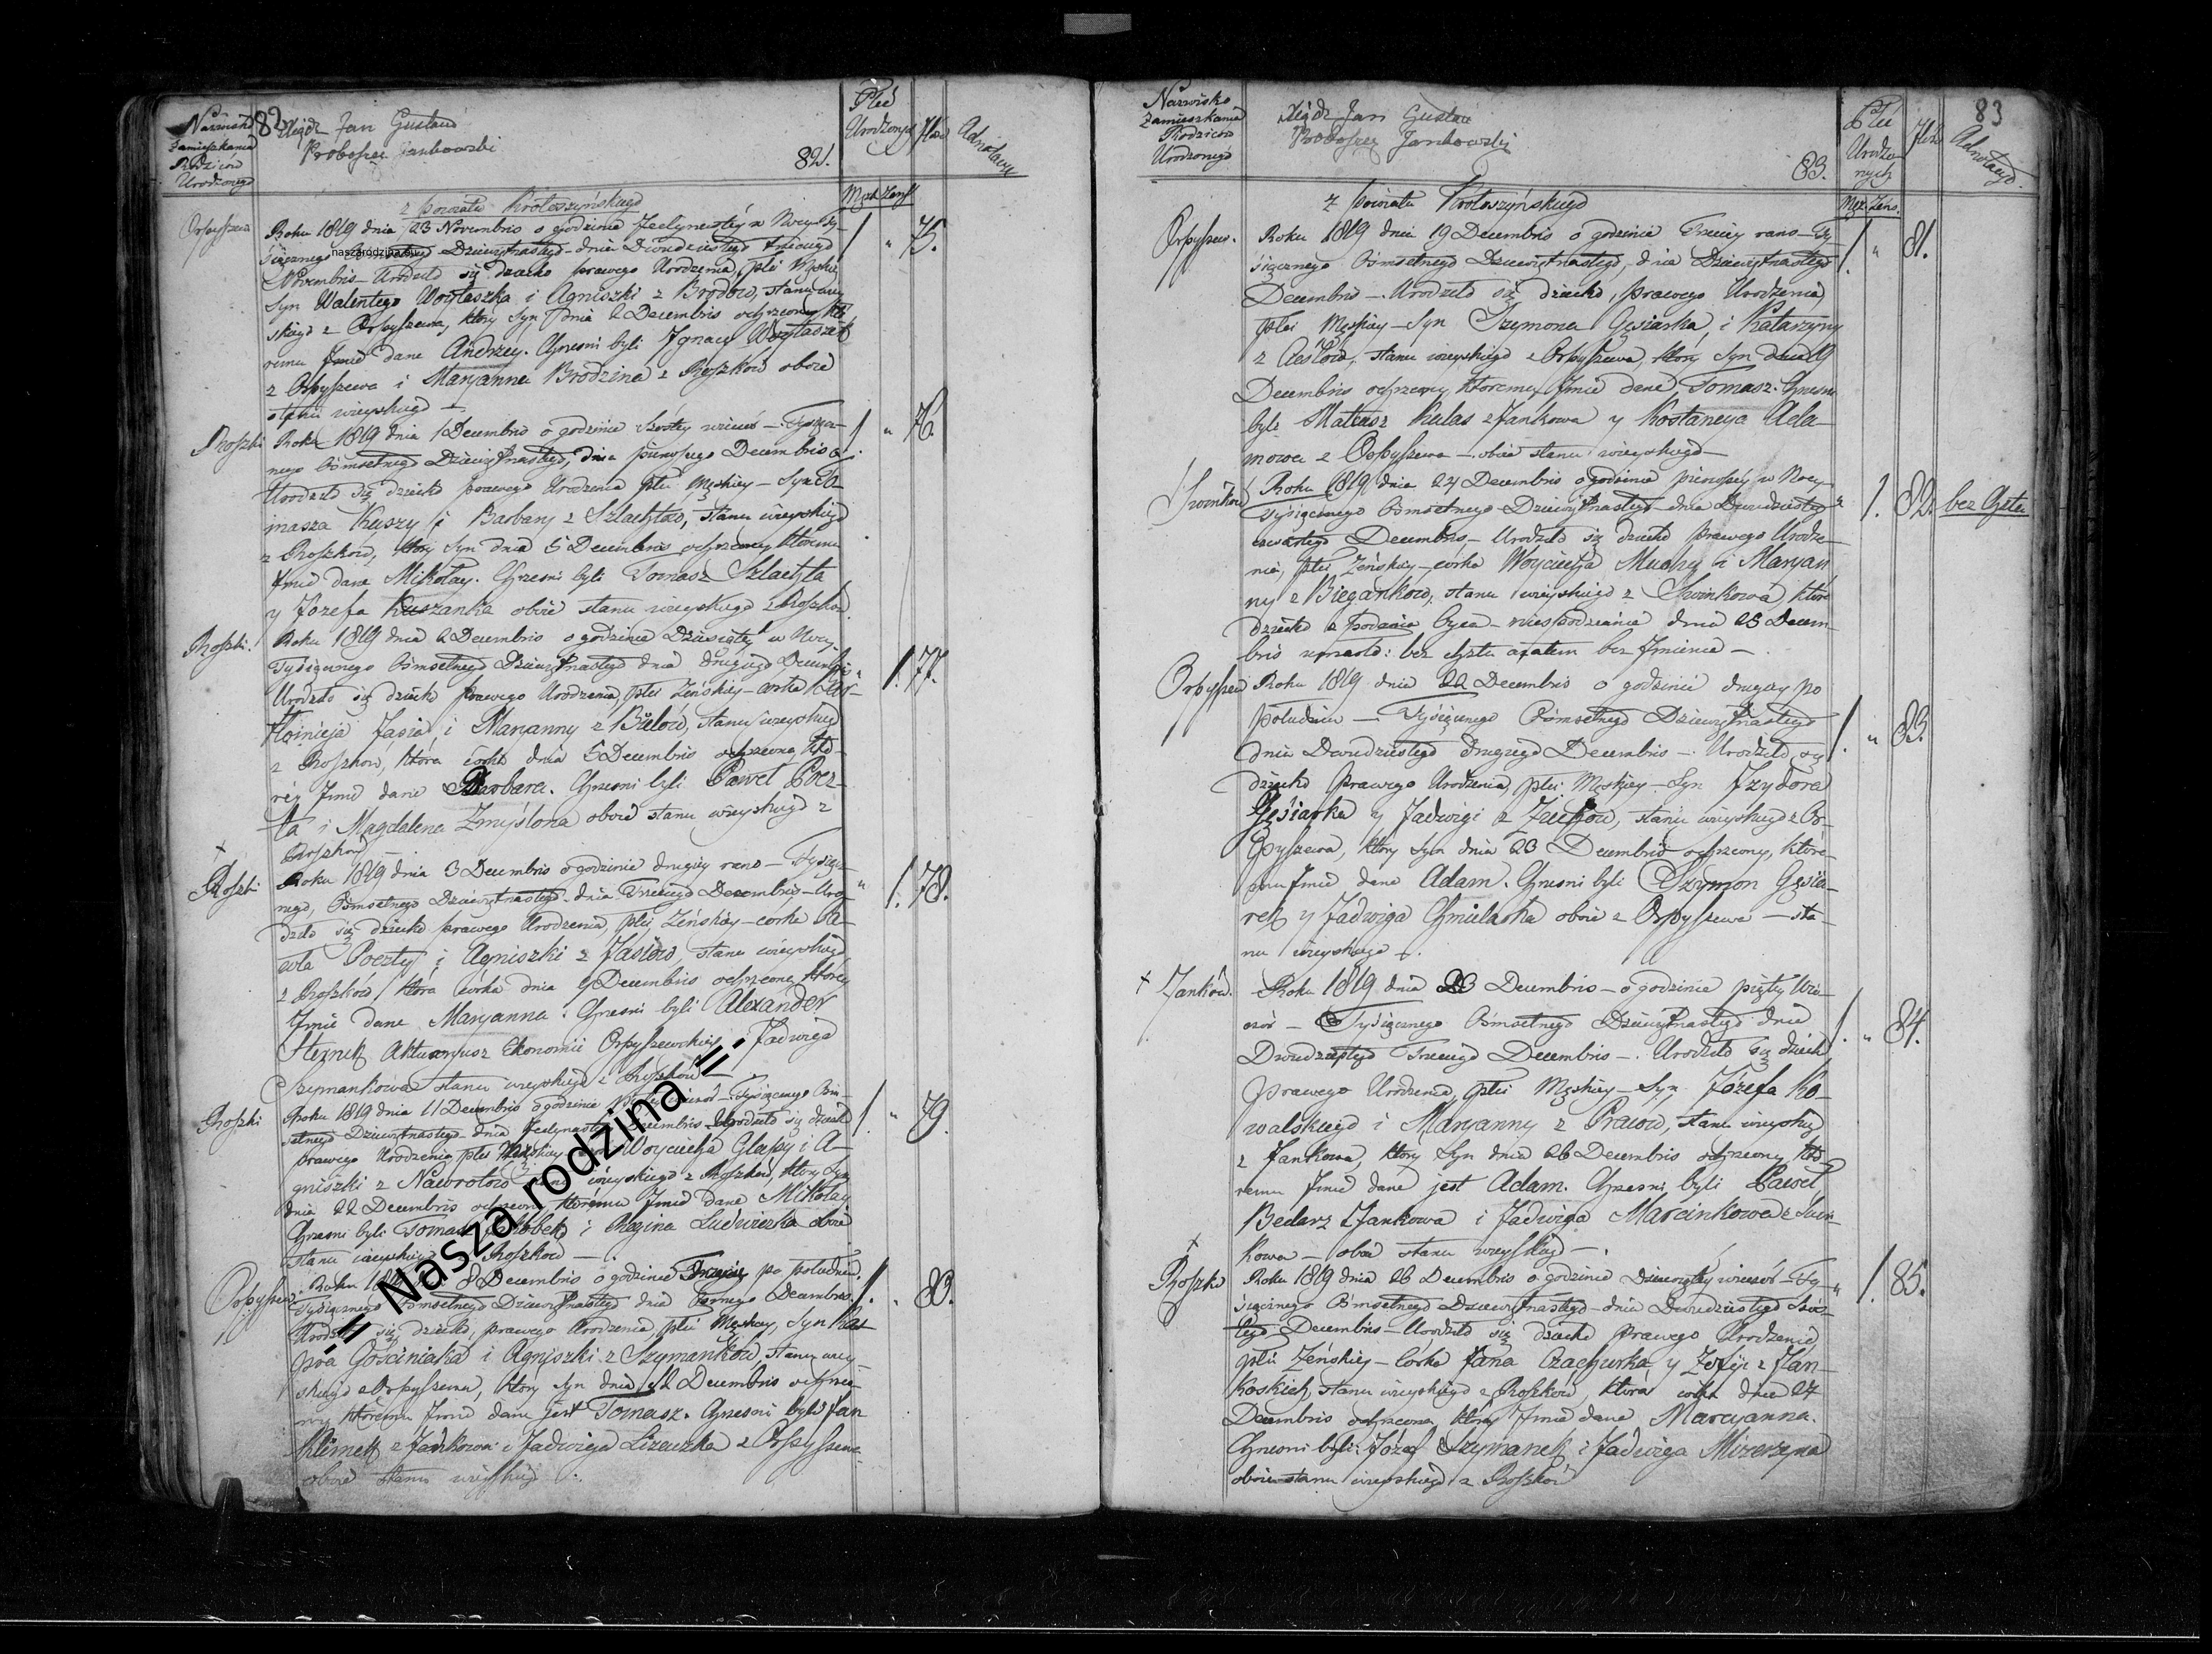 Nazwisko
Zamieszkania
Rodziców
Urodzonego
82
Xiądz Jan Gustaw
Proboszcz Jankowski
82.
Płeć
Urodzonych
Adnotacya
Męzk Żeńs
z Powiatu Krotoszyńskiego
Orpyszewa
Roku 1819 dnia 23 Novembris o godzinie Jedynastey w Nocy Ty-
naszarodzina
siącznego Dziewiętnastego dnia Dwudziestego trzeciego
Novembris Urodziło się dziecko prawego Urodzenia, płci Męskiey
Syn Walentego Woytaszka i Agniszki z Brodów, stanu wiey-
skiego z Orpyszewa, który Syn dnia 2 Decembris ochrzczony któ-
remu Jmie dane Andrzey. Chrzesni byli Jgnacy Woytaszek
z Orpyszewa i Maryanna Brodzina z Roszków oboie
stanu wieyskiego —
1 " 75.
Roszki
Roku 1819 dnia 1 Decembris o godzinie Szóstey wieczór — Tysiącz-
nego Ośmsetnego Dziewiętnastego, dnia pierwszego Decembris
Urodziło się dziecko prawego Urodzenia płci Męskiey — Syn To-
masza Kuszy i Barbary z Szlachtów, stanu wieyskiego
z Roszków, który Syn dnia 5 Decembris ochrzczony któremu
Jmie dane Mikołay. Chrzesni byli Tomasz Szlachta
y Józefa Kuszanka oboie stanu wieyskiego z Roszków
1 " 76.
Roszki.
Roku 1819 dnia 2 Decembris o godzinie Dziesiątey w Nocy
Tysiącznego Ośmsetnego Dziewiętnastego dnia drugiego Decembris
Urodziło się dziecko prawego Urodzenia, płci Żeńskiey — corka
Jasia i Maryanny z Bielów, stanu wieyskiego
z Roszków, która córka dnia 5 Decembris ochrzczona, któ-
rey Jmie dane Barbara. Chrzesni byli Paweł Pocz-
ta i Magdalena Zmyślona oboie stanu wieyskiego z
Roszków
" 1. 77.
Roszki
Roku 1819 dnia 3 Decembris o godzinie drugiey rano — Tysiącz-
nego, Ośmsetnego Dziewiętnastego dnia Trzeciego Decembris — Uro-
dziło się dziecko prawego Urodzenia, płci Żeńskiey — corka Pa-
wła Poczty i Agniszki z Jasiów, stanu wieyskiego
z Roszków, która córka dnia 9 Decembris ochrzczona, którey
Jmie dane Maryanna. Chrzesni byli Alexander
Sternek Aktuaryusz Ekonomii Orpyszewskiey i Jadwiga
Szymankowa stanu wieyskiego z Roszków —
" 1. 78.
Roszki
Roku 1819 dnia 11 Decembris o godzinie wieczór — Tysiącznego Ośm-
setnego Dziewiętnastego dnia Jedynastego Decembris Urodziło się dziecko
prawego Urodzenia płci Męskiey Woyciecha Glapy i A-
gniszki z Nawrotów stanu wieyskiego z Roszków, który Syn
dnia 12 Decembris ochrzczony któremu Jmie dane Mikołay
Chrzesni byli Tomasz i Regina Ludwiczka oboie
stanu wieyskiego Roszków —.
1. " 79.
Orpyszew.
Roku 1819 8 Decembris o godzinie Trzeciey po południu.
Tysiącznego Ośmsetnego Dziewiętnastego dnia Ósmego Decembris.
Urodziło się dziecko, prawego Urodzenia, płci Męskiey, Syn Kas-
pra Gościniaka i Agniszki z Szymanków, stanu wiey-
skiego z Orpyszewa, który Syn dnia 12 Decembris ochrzczo-
ny któremu Jmie dane jest Tomasz. Chrzesni byli Jan
Klimek z Jankowa i Jadwiga Lizaczka z Orpyszewa
oboie stanu wieyskiego.
1. " 80.
.:: Nasza rodzina ::.
Nazwisko
Zamieszkania
Rodziców
Urodzonego
Xiądz Jan Gustaw
Proboszcz Jankowski
83.
Płeć
Urodzo-
nych
83
Adnotacye.
Męz. Żeńs.
z Powiatu Krotoszyńskiego
Orpyszew.
Roku 1819 dnia 19 Decembris o godzinie Trzeciey rano — Ty-
siącznego Ośmsetnego Dziewiętnastego, dnia Dziewiętnastego
Decembris —. Urodziło się dziecko, prawego Urodzenia,
płci Męskiey — Syn Szymona Gęsiarka, i Katarzyny
z, stanu wieyskiego z Orpyszewa, który Syn dnia 19
Decembris ochrzczony, któremu Jmie dane Tomasz. Chrzesni
byli Mateusz Kulas z Jankowa y Kostancya Ada-
mowa z Orpyszewa — oboie stanu wieyskiego —
1. " 81.
Swinków
Roku 1819 dnia 24 Decembris o godzinie pierwszey w Nocy
Tysiącznego Ośmsetnego Dziewiętnastego dnia Dwudziestego
czwartego Decembris — Urodziło się dziecko prawego Urodze-
nia, płci Żeńskiey — córka Woyciecha Muchy i Maryan-
ny z Bieganków, stanu wieyskiego z Swinkowa, które
dziecko z podania Oyca — niespodzianie dnia 25 Decem-
bris umarło: bez chrztu a zatem bez Jmienia —.
" 1. 82. bez Chrztu
Orpyszew
Roku 1819 dnia 22 Decembris o godzinie drugiey po
południu — Tysiącznego Ośmsetnego Dziewiętnastego
dnia Dwudziestego drugiego Decembris —. Urodziło się
dziecko prawego Urodzenia, płci Męskiey — Syn Jzydora
Gęsiarka y Jadwigi z, stanu wieyskiego z Or-
pyszewa, który Syn dnia 23 Decembris ochrzczony, które-
mu Jmie dane Adam. Chrzesni byli Szymon Gęsia-
rek y Jadwiga Chmielarka oboie z Orpyszewa — sta-
nu wieyskiego —.
1. " 83.
Janków.
Roku 1819 dnia 23 Decembris — o godzinie piątey Wie-
czór — Tysiącznego Ośmsetnego Dziewiętnastego dnia
Dwudziestego Trzeciego Decembris —. Urodziło się dziecko
prawego Urodzenia, płci Męskiey — Syn Józefa Ko-
walskiego i Maryanny z, stanu wieyskiego
z Jankowa, który Syn dnia 26 Decembris ochrzczony, któ-
remu Jmie dane jest Adam. Chrzesni byli Paweł
Bednarz z Jankowa i Jadwiga Marcinkowa z Swin-
kowa — oboie stanu wieyskiego —.
1. " 84.
Roszki
Roku 1819 dnia 26 Decembris o godzinie Dziewiątey wieczór — Ty-
siącznego Ośmsetnego Dziewiętnastego — dnia Dwudziestego Szós-
tego Decembris — Urodziło się dziecko prawego Urodzenia
płci Żeńskiey — Córka Jana Czachurka y Zofije z Jan-
koskich, stanu wieyskiego z Roszków, która córka dnia 27
Decembris ochrzczona, którey Jmie dane Marcyanna.
Chrzesni byli: Józef Szymanek i Jadwiga Mizerzyna
oboie stanu wieyskiego z Roszków
" 1. 85.